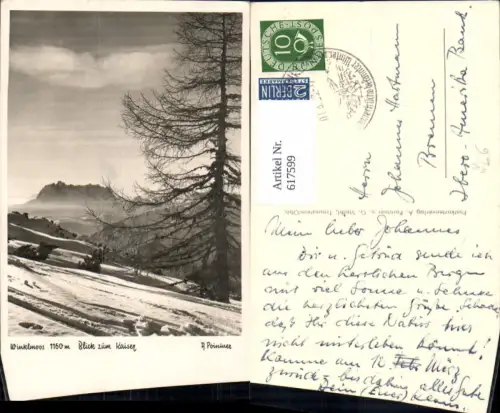 Winkelmoos 1160 m Blick zum Kaiser
A Poimner
DEUTSCHE BUNDESPOST
10
2
BERLIN
STEUERMARKE
Artikel Nr.
617599
Herrn
Johannes Hartmann
Bremen
Ibero-Amerika Bank
Mein lieber Johannes
Dir u. sende ich
aus den herrlichen Bergen
mit viel Sonne u. Schnee
die herzlichsten Grüße. Schade,
daß Ihr diese Natur hier
nicht miterleben könnt!
Komme am 12. März
zurück - bis dahin alles Gute
Dein (Euer)